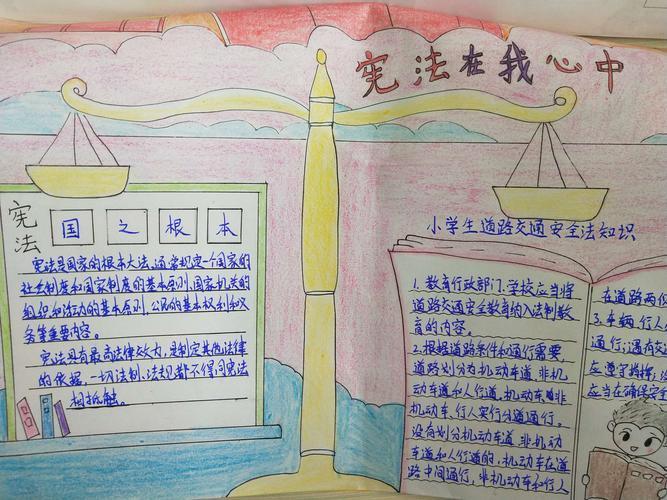 宪法在我心中
宪法
国之根本
宪法是国家的根本大法,通常规定一个国家的
社会制度和国家制度的基本原则,国家机关的
组织和活动的基本原则,公民的基本权利和义
务等重要内容。
宪法具有最高法律效力,是制定其他法律
的依据,一切法制、法规都不得同宪法
相抵触。
小学生道路交通安全法知识
1.教育行政部门、学校应当将
道路交通安全教育纳入法制教
育的内容。
2.根据道路条件和通行需要,
道路划分为机动车道、非机
动车道和人行道,机动车、非
机动车、行人实行分道通行。
没有划分机动车道、非机动
车道和人行道的,机动车在道
路中间通行,非机动车和行人
在道路两侧
3.车辆、行人
通行;遇有交
应当在确保安全